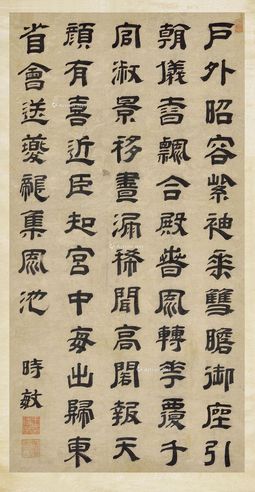 戶外昭容紫袖垂雙瞻御座引
朝儀香飄合殿春風轉花覆千
官淑景移晝漏稀聞高閣報天
顏有喜近臣知宮中每出歸東
省會送夔龍集鳳池
時敏